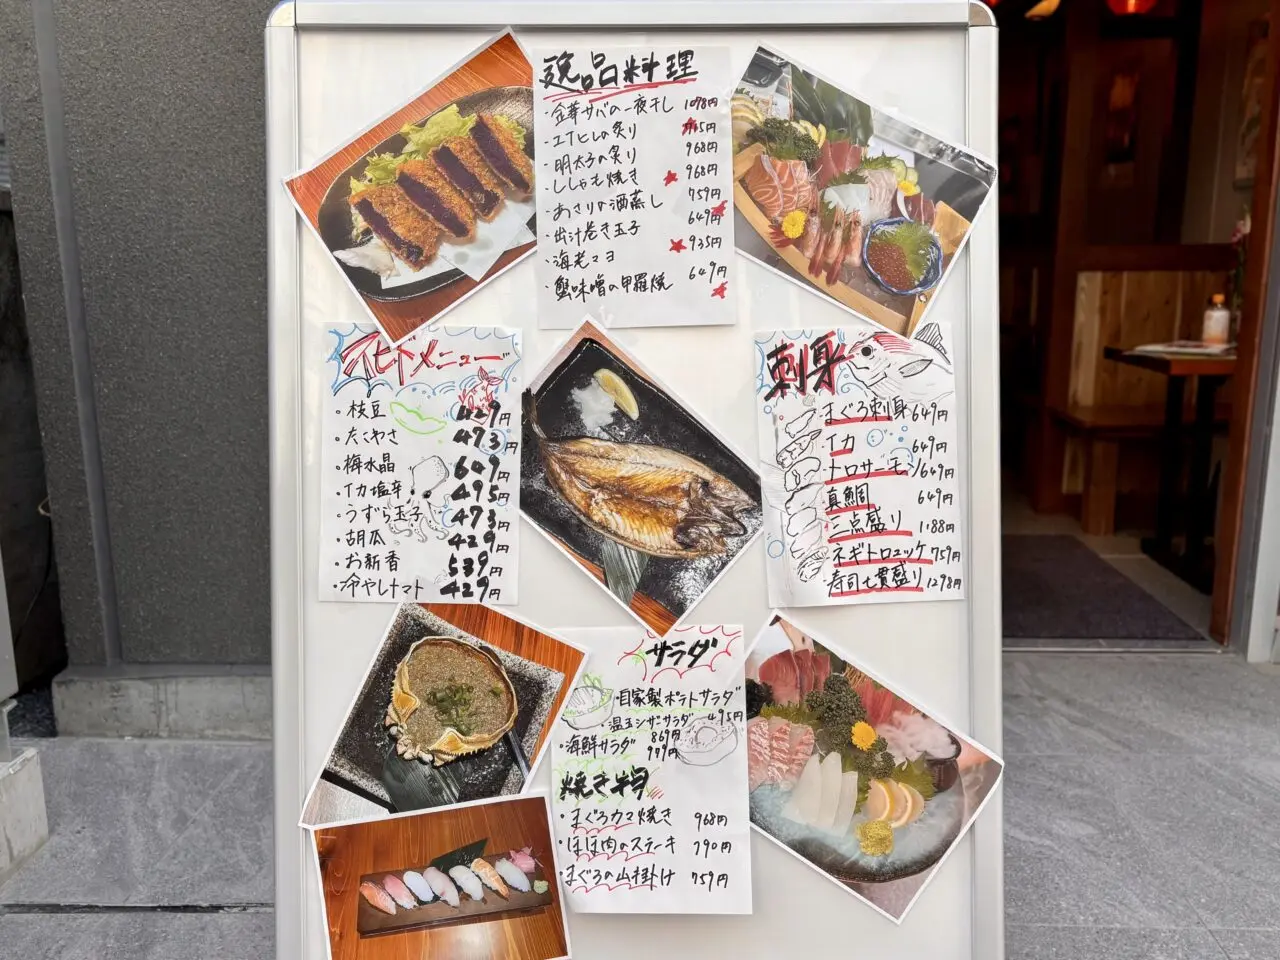 逸品料理
・金華サバの一夜干し 1098円
・エイヒレの炙り 715円
・明太子の炙り 968円
・ししゃも焼き 968円
・あさりの酒蒸し 759円
・出汁巻き玉子 649円
・海老マヨ 935円
・蟹味噌の甲羅焼 649円
スピードメニュー
・枝豆 429円
・たこわさ 473円
・梅水晶 649円
・イカ塩辛 495円
・うずら玉子 473円
・胡瓜 429円
・お新香 539円
・冷やしトマト 429円
刺身
・まぐろ刺身 649円
・イカ 649円
・トロサーモン 649円
・真鯛 649円
・三点盛り 1188円
・ネギトロユッケ 759円
・寿司七貫盛り 1298円
サラダ
・自家製ポテトサラダ 495円
・温玉シーザーサラダ 869円
・海鮮サラダ 979円
焼き物
・まぐろカマ焼き 968円
・ほほ肉のステーキ 790円
・まぐろの山掛け 759円